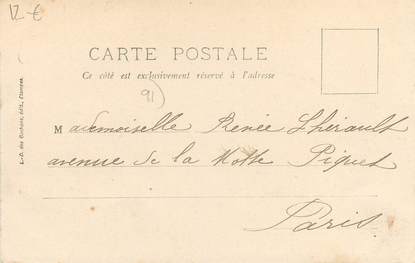 12 €
CARTE POSTALE
Ce côté est exclusivement réservé à l'adresse
91)
Mademoiselle Renée Lhérault
avenue de la Motte Piquet
Paris
L.-D. des Gachons, édit., Étampes